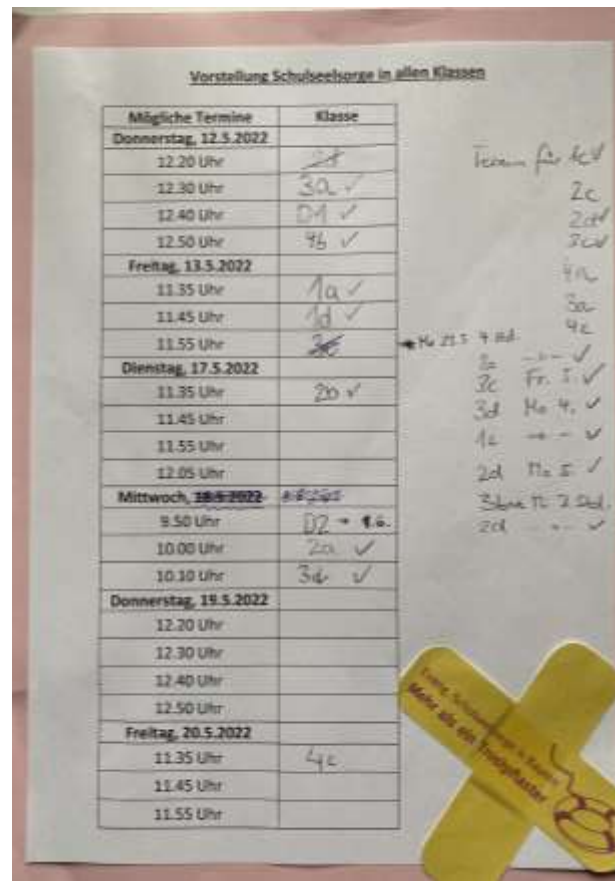 Vorstellung Schulseelsorge in allen Klassen
Mögliche Termine Klasse
Donnerstag, 12.5.2022
12.20 Uhr
12.30 Uhr 3a ✓
12.40 Uhr D1 ✓
12.50 Uhr 4b ✓
Freitag, 13.5.2022
11.35 Uhr 1a ✓
11.45 Uhr 1d ✓
11.55 Uhr
Dienstag, 17.5.2022
11.35 Uhr 2b ✓
11.45 Uhr
11.55 Uhr
12.05 Uhr
Mittwoch, 18.5.2022
9.50 Uhr D2 → 1.6.
10.00 Uhr 2a ✓
10.10 Uhr 3d ✓
Donnerstag, 19.5.2022
12.20 Uhr
12.30 Uhr
12.40 Uhr
12.50 Uhr
Freitag, 20.5.2022
11.35 Uhr 4c
11.45 Uhr
11.55 Uhr
Termin für 1c ✓
2c
2d ✓
3c ✓
4a
3a
4c
2c Fr. 5. ✓
3d Mo 4. ✓
1c ✓
2d Mo 5. ✓
2d
Evang. Schulseelsorge in Bayern
Mehr als ein Trostpflaster